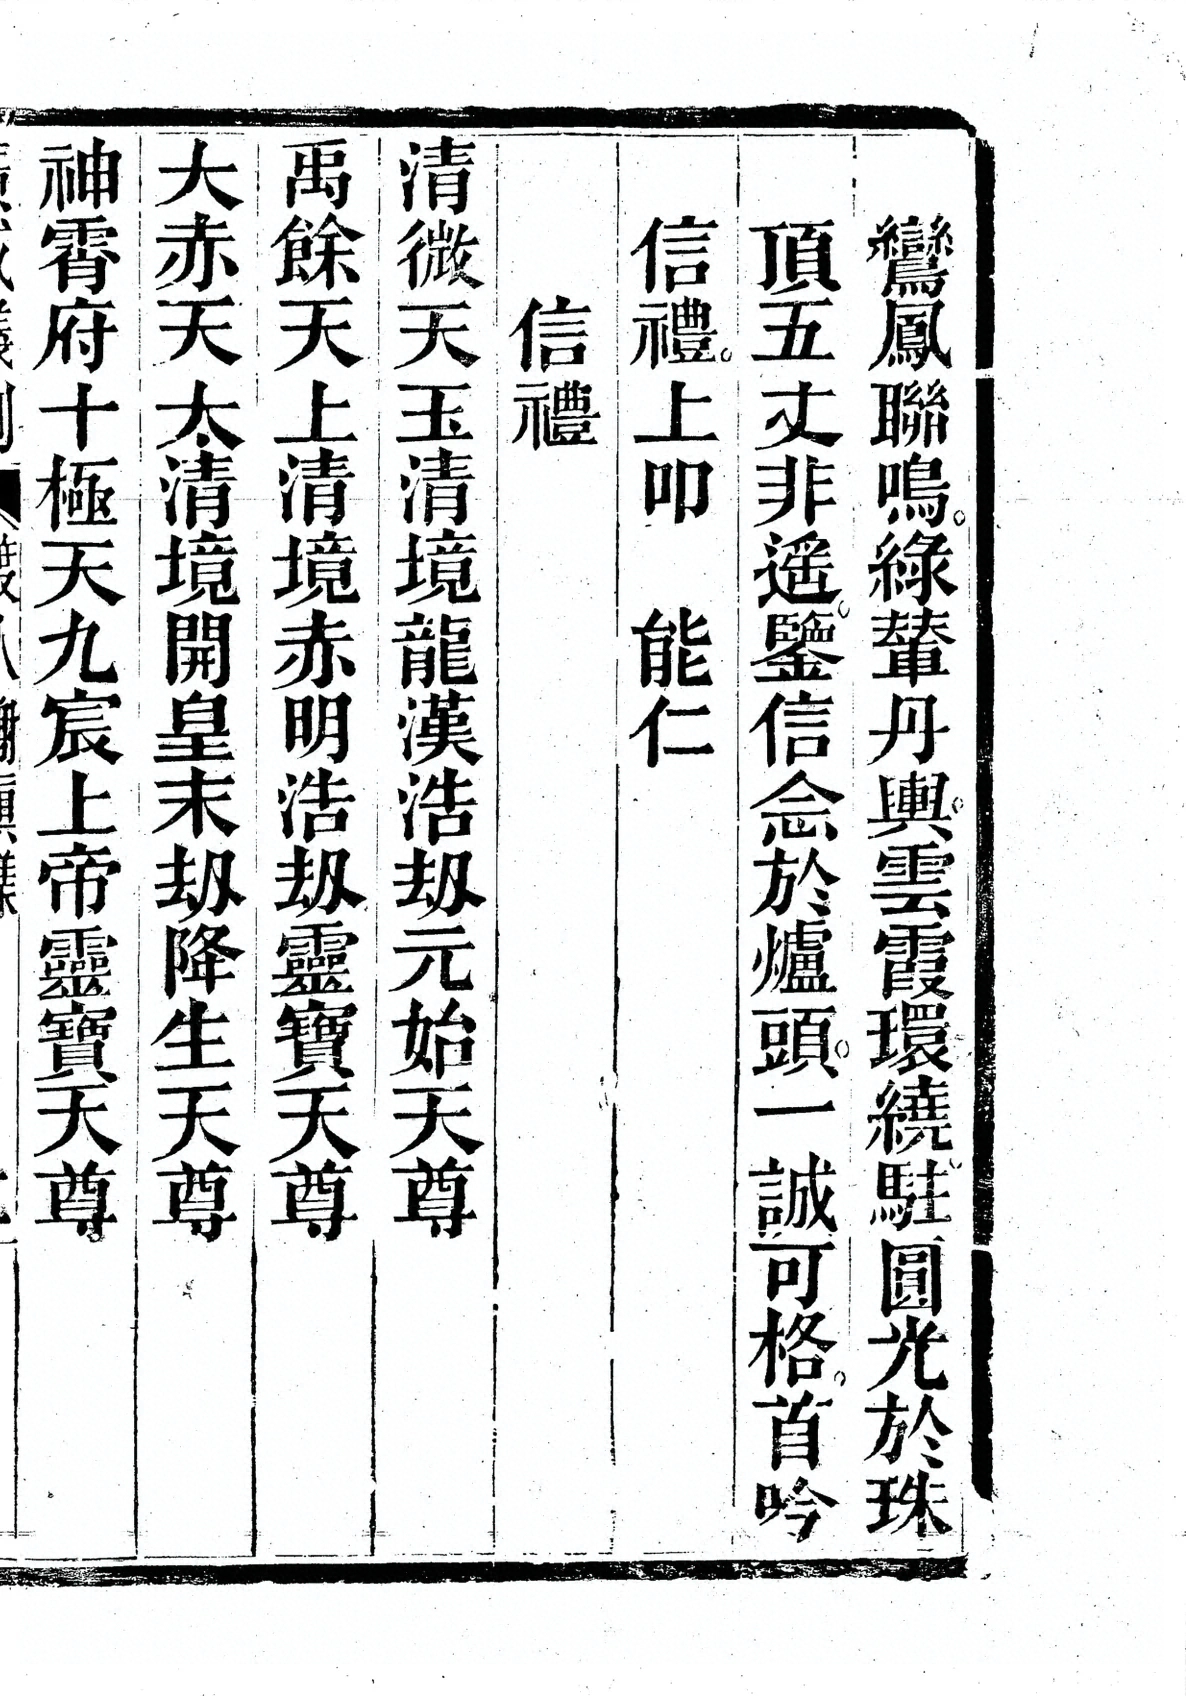 鸞鳳聯鳴。綠輦丹輿。雲霞環繞。駐圓光於珠
頂五丈非遥。鑒信念於爐頭。一誠可格。首吟
信禮。上叩　能仁
信禮
清微天玉清境龍漢浩刼元始天尊
禹餘天上清境赤明浩刼靈寶天尊
大赤天太清境開皇末刼降生天尊
神霄府十極天九宸上帝靈寶天尊